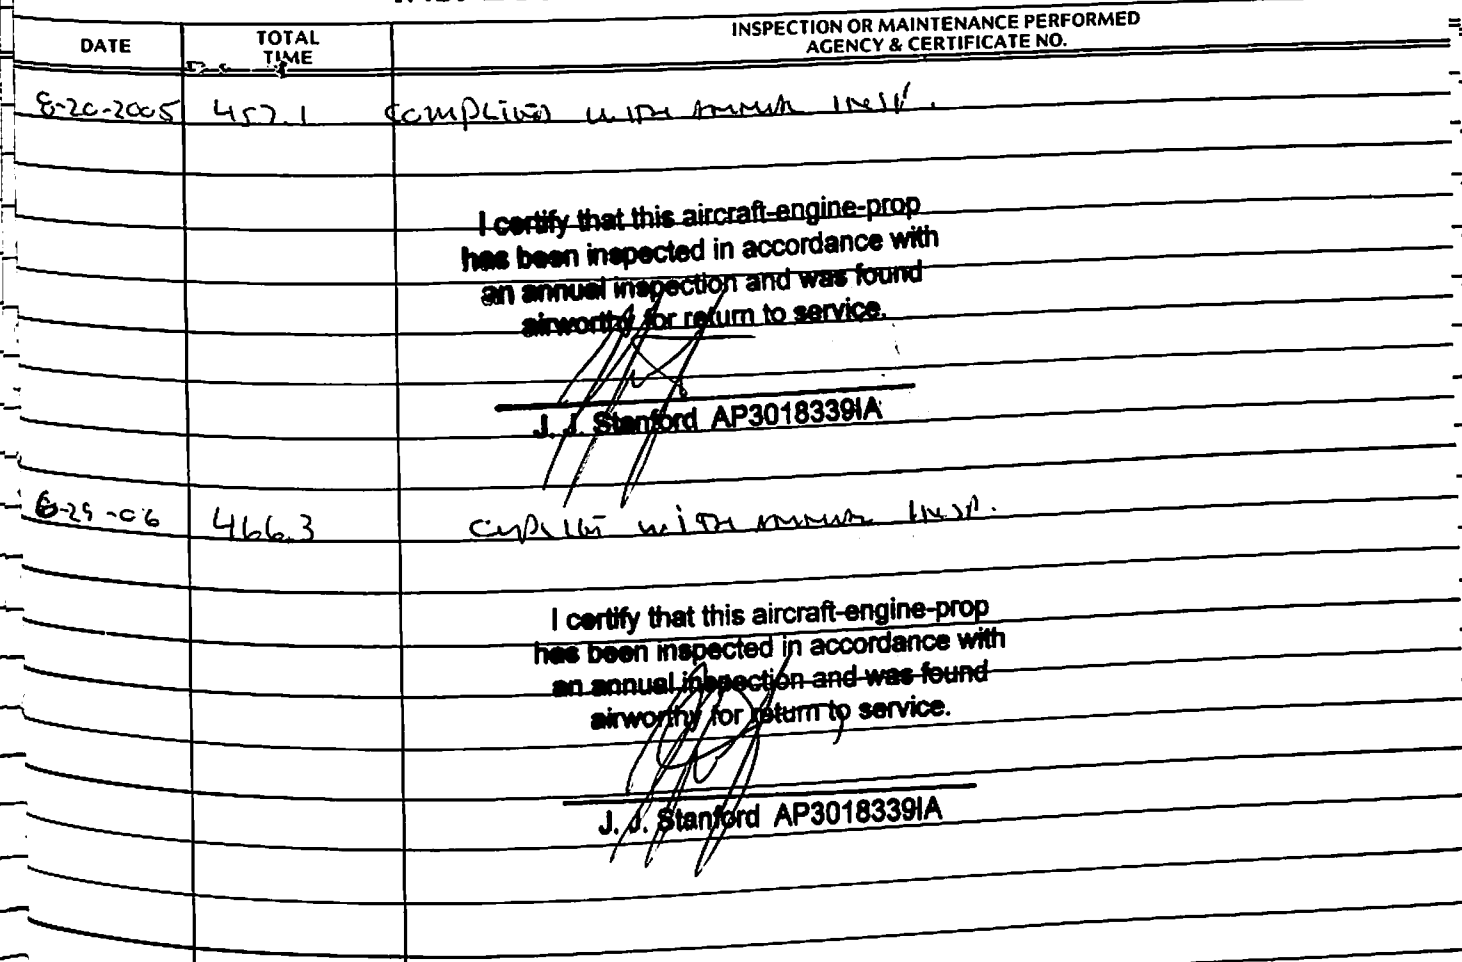 DATE
TOTAL TIME
INSPECTION OR MAINTENANCE PERFORMED
AGENCY & CERTIFICATE NO.
8-20-2005 457.1 complied with annual insp.
I certify that this aircraft-engine-prop
has been inspected in accordance with
an annual inspection and was found
airworthy for return to service.
J. J. Stanford AP3018339IA
8-29-06 466.3 with annual insp.
I certify that this aircraft-engine-prop
has been inspected in accordance with
an annual inspection and was found
airworthy for return to service.
J. J. Stanford AP3018339IA